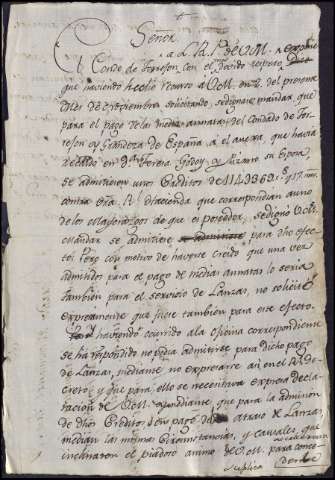 Señor
A L. R. P. de V.M.
El Conde de Torrejon con el devido respeto
que haviendo hecho recurso à V.M. en 2. del proximo
mes de septiembre solicitando, se dignase mandar, que
para el pago de las medias annatas del Condado de Tor-
rejon y Grandeza de España à el anexa que havia
recaido en Dª Teresa Godoy y Lizano su esposa
se admitiesen unos Creditos de 1149869
contra esta Rl. Hacienda que correspondian a uno
de los Mayorazgos de que es poseedor, se dignó V.M.
mandar se admitiese para dho efec-
to; Pero con motivo de haverse creido que una vez
admitidos para el pago de medias annatas lo seria
tambien para el servicio de Lanzas, no solicitó
expresamente que fuese tambien para este efecto.
haviendo ocurrido ala oficina correspondiente
se ha respondido no podia admitirse para dicho pago
de Lanzas, mediante no expresarse asi en el Rl. De-
creto; y que para ello se necesitava expresa decla-
racion de V.M. mediante, que para la admision
de dhos Creditos, en pago del atraso de Lanzas,
median las mismas circunstancias, y causales, que
inclinaron el piadoso animo de V.M. para conce-
Suplica